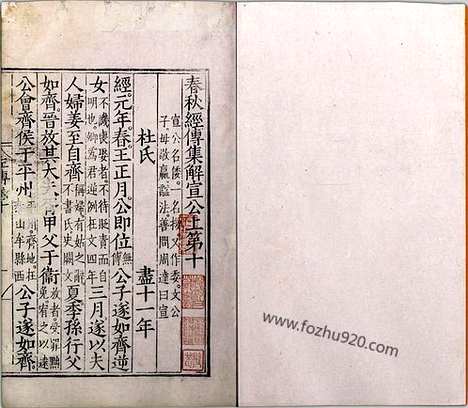 春秋經傳集解宣公上第十
宣公名倭一名接又作委文公
子母敬嬴諡法善問周達曰宣
杜氏 盡十一年
經元年春王正月公即位無傳公子遂如齊逆
女不譏喪娶者不待貶責而自明也卿為君逆例在文四年三月遂以夫
人婦姜至自齊稱婦有姑之辭不書氏史闕文夏季孫行父
如齊晉放其大夫胥甲父于衞放者受罪黜免宥之以遠
公會齊侯于平州齊地在山牟縣西公子遂如齊
www.fozhu920.com